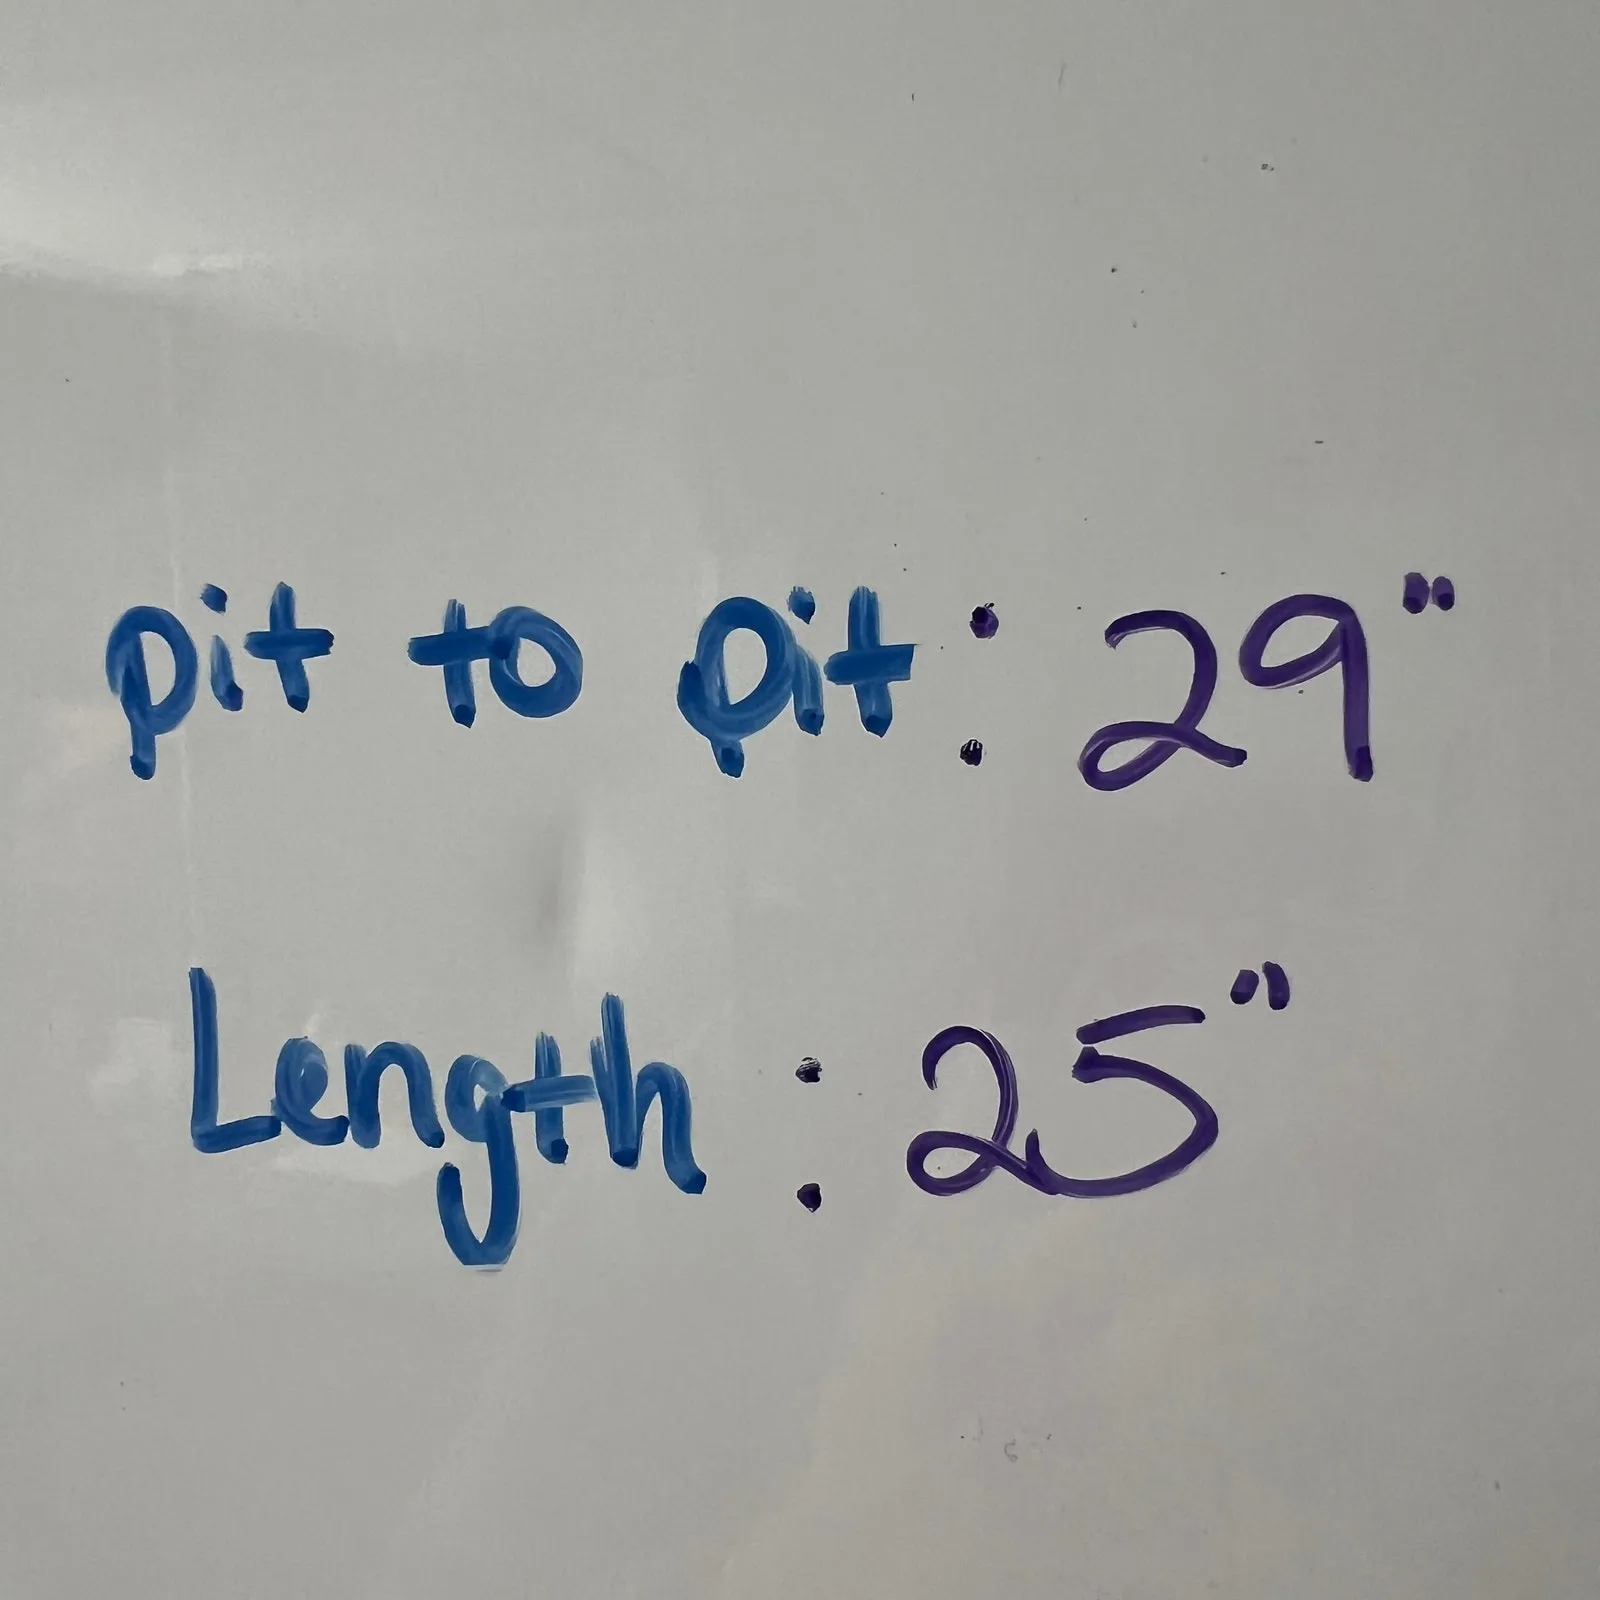 pit to pit : 29"
Length : 25"